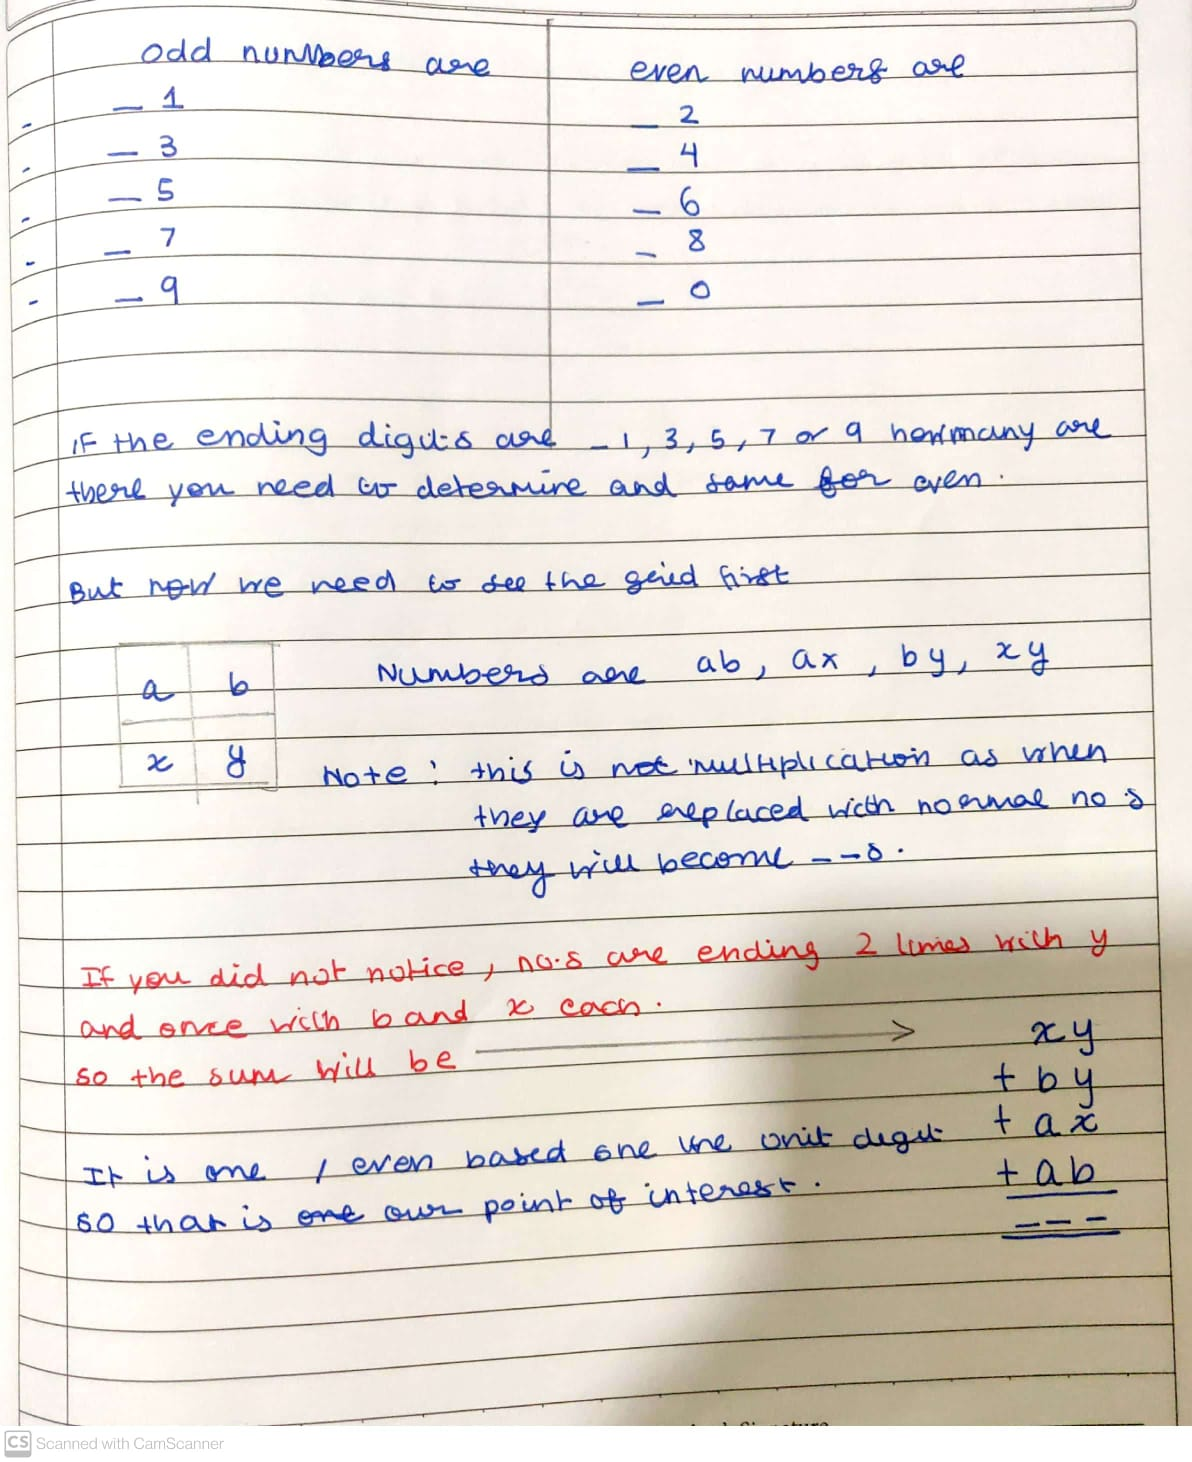 odd numbers are
_ 1
_ 3
_ 5
_ 7
_ 9
even numbers are
_ 2
_ 4
_ 6
_ 8
_ 0
IF the ending digits are _ 1, 3, 5, 7 or 9 how many are
there you need to determine and same for even.
But now we need to see the grid first
a b
x y
Numbers are ab, ax, by, xy
Note: this is not multiplication as when
they are replaced with normal no s
they will become _ _ s.
If you did not notice, no.s are ending 2 times with y
and once with b and x each.
so the sum will be
xy
+ by
+ ax
+ ab
_ _ _
It is one / even based one the unit digit
so that is one our point of interest.
CS Scanned with CamScanner